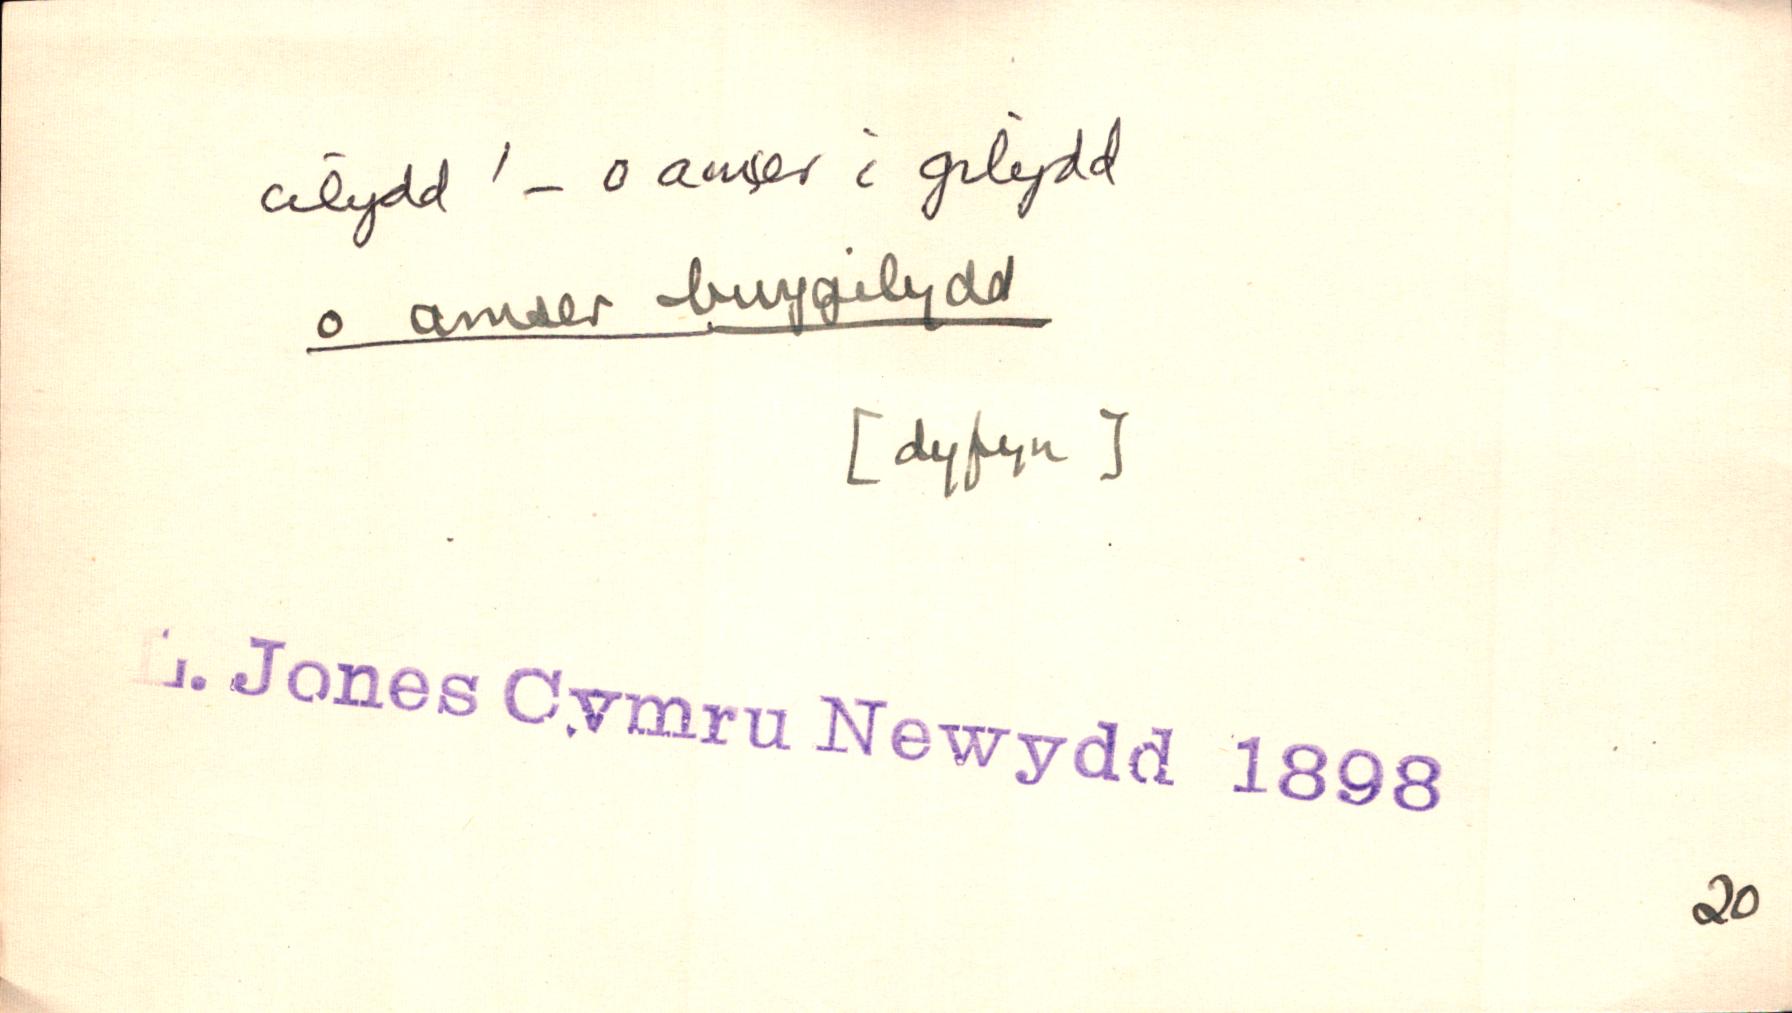 cilydd¹ – o amser i gilydd
o amser bwygilydd
[dyfyn]
. Jones Cymru Newydd 1898
20